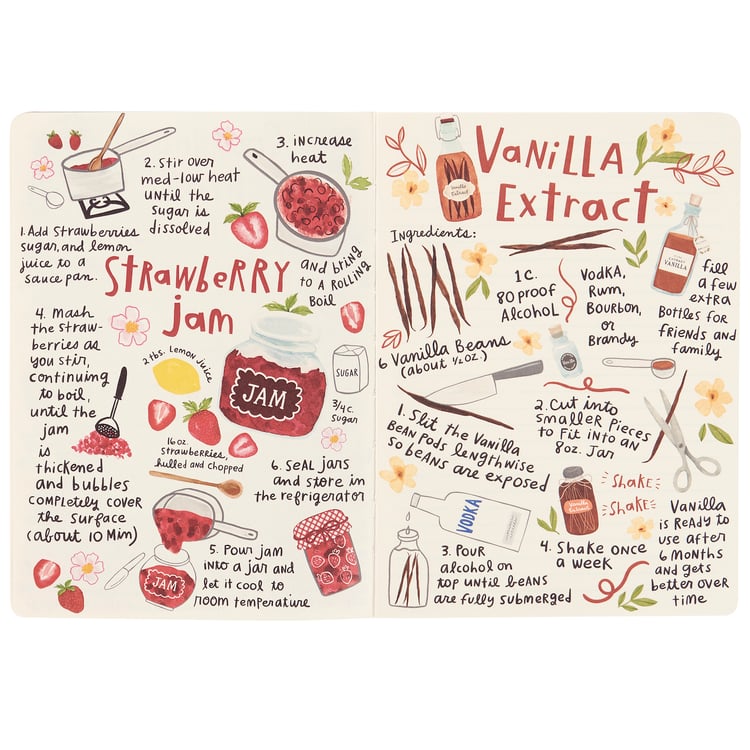 Strawberry
jam
1. Add Strawberries
sugar, and lemon
juice to a
sauce pan.
2. Stir over
med-low heat
until the
sugar is
dissolved
3. increase
heat
and bring
to a Rolling
Boil
4. Mash
the straw-
berries as
you stir,
continuing
to boil,
until the
jam
is
thickened
and bubbles
completely cover
the surface
(about 10 Min)
2 tbs. Lemon Juice
JAM
SUGAR
3/4 c.
Sugar
16 oz.
Strawberries,
hulled and chopped
6. Seal jars
and store in
the refrigerator
JAM
5. Pour jam
into a jar and
let it cool to
room temperature
Vanilla
Extract
Vanilla
Extract
Ingredients:
1 c.
80 proof
Alcohol
Vodka,
Rum,
Bourbon,
or
Brandy
VANILLA
fill
a few
extra
Bottles for
friends and
family
6 Vanilla Beans
(about 1/2 oz.)
1. Slit the Vanilla
Bean Pods lengthwise
so beans are exposed
2. Cut into
smaller pieces
to fit into an
8oz. Jar
VODKA
3. Pour
alcohol on
top until beans
are fully submerged
Vanilla
Extract
Shake
Shake
4. Shake once
a week
Vanilla
is Ready to
use after
6 months
and gets
better over
time